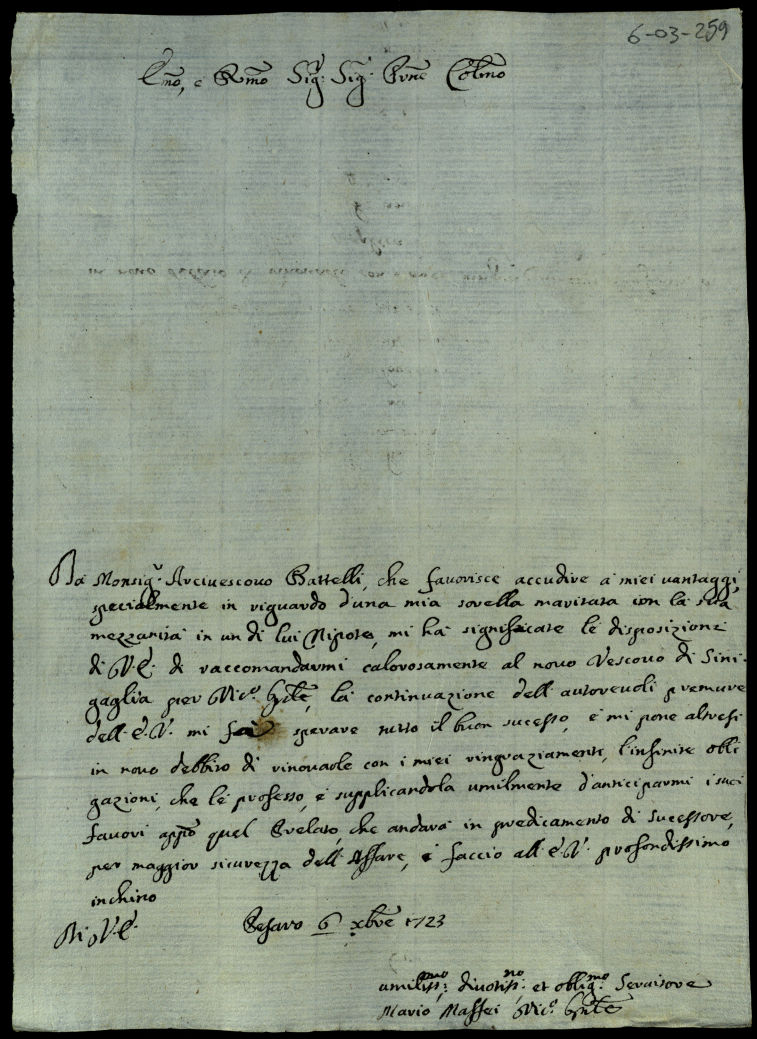 6-03-259
Emo, e Rmo Sigr. Sigr. Prne Colmo
Da Monsigr. Arciuescouo Battelli, che fauorisce accudire a miei uantaggi,
specialmente in riguardo d'una mia sorella maritata con la sua
mezzanità in un di lui Nipote, mi hà significate le disposizioni
di V.E. di raccomandarmi calorosamente al nouo Vescouo di Sini-
gaglia per Vico. Gnle, la continuazione dell'autoreuoli premure
dell'E.V. mi fà sperare tutto il buon sucesso, e mi pone altresi
in nouo debbito di rinouarle con i miei ringraziamenti, l'infinite obli
gazioni, che le professo, e supplicandola umilmente d'anticiparmi i suoi
fauori appo quel Prelato, che andarà in predicamento di Sucessore,
per maggior sicurezza dell'Affare, e faccio all'E.V. profondissimo
inchino
Di V.E. Pesaro 6 xbre 1723
umilissmo: diuotissmo: et obligmo. Seruitore
Mario Massei Vico. Gnle